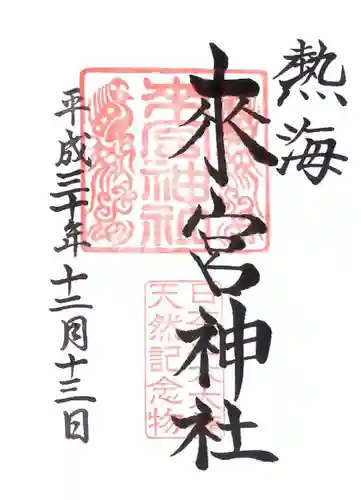 熱海
來宮神社
平成三十年十二月十三日
来宮神社
天然記念物